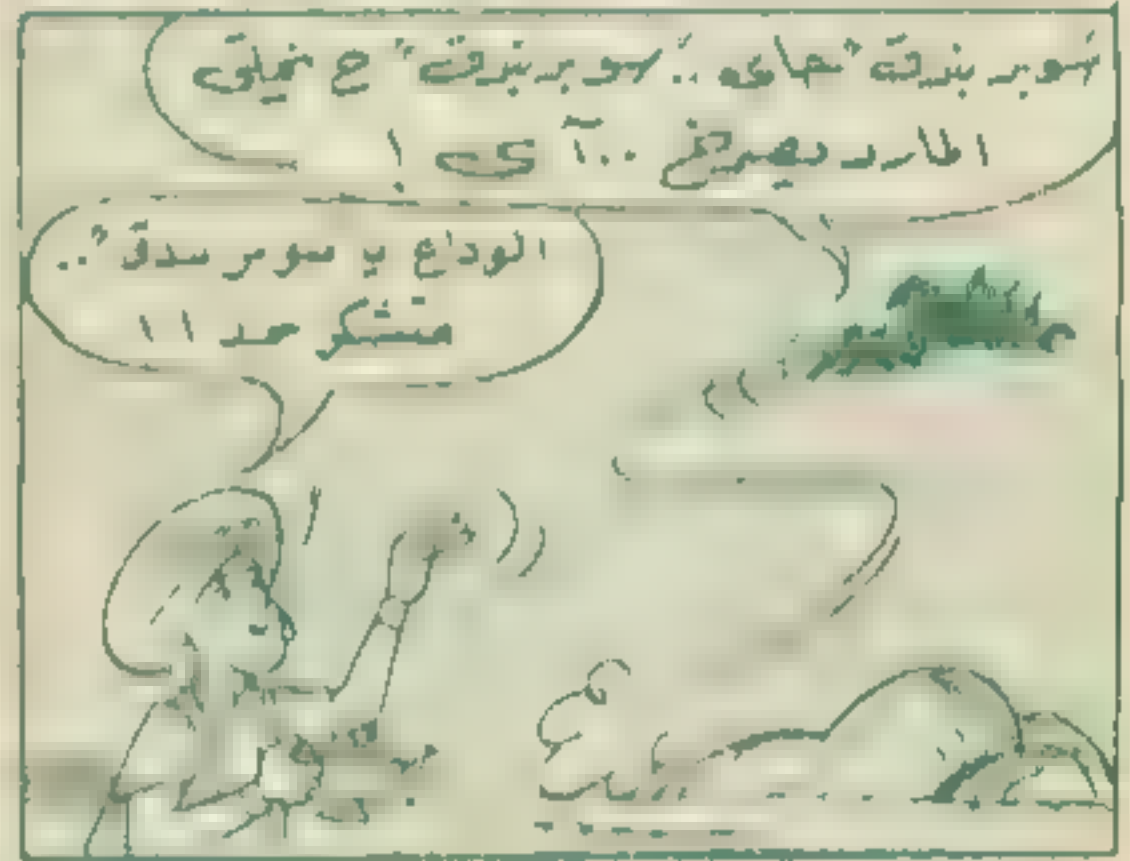 "سوبر بندق" جاى .. "سوبر بندق" ح يخلى
المارد يصرخ .. آ ى !
الوداع يا سوبر بندق" ..
متشكر جد !!